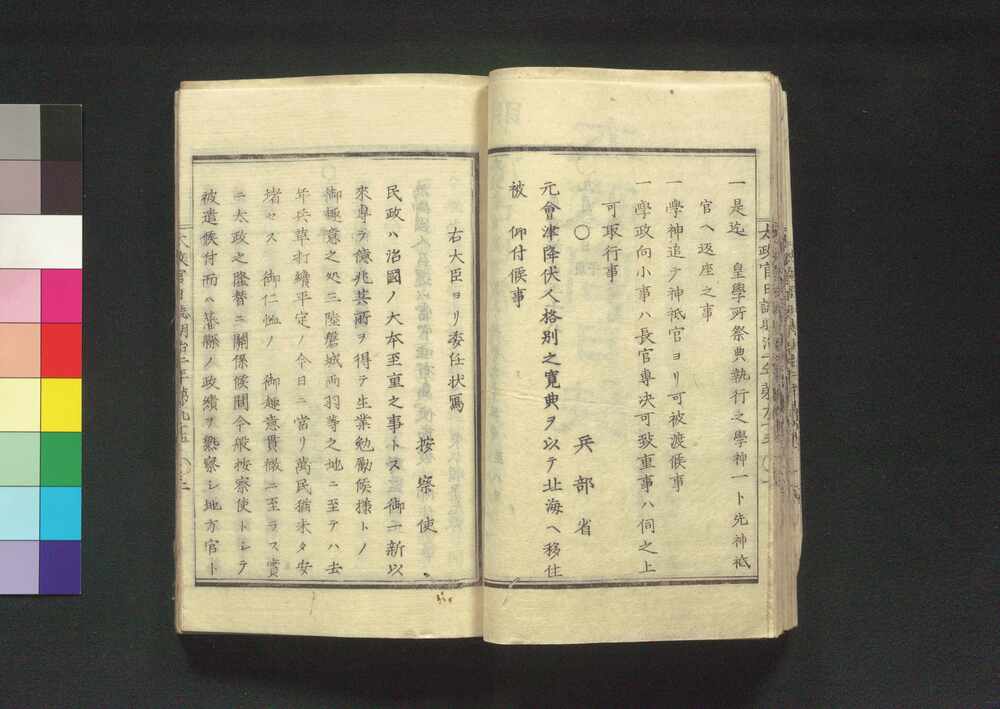 一是迄　皇學所祭典執行之學神一ト先神祇
官ヘ返座之事
一學神追テ神祇官ヨリ可被渡候事
一學政向小事ハ長官專决可致重事ハ伺之上
可取行事
○　兵部省
元會津降伏人格別之寛典ヲ以テ北海ヘ移住
被　仰付候事
右大臣ヨリ委任状寫
按察使
民政ハ治國ノ大本至重之事トス御一新以
來專ラ億兆其所ヲ得テ生業勉勵候様トノ
御趣意之処三陸磐城両羽等之地ニ至テハ去
年兵革打續平定ノ今日ニ當リ萬民猶未タ安
堵セス　御仁恤ノ　御趣意貫徹ニ至ラス實
ニ太政之隆替ニ關係候間今般按察使トシテ
被遣候付而ハ藩縣ノ政績ヲ熟察シ地方官ト